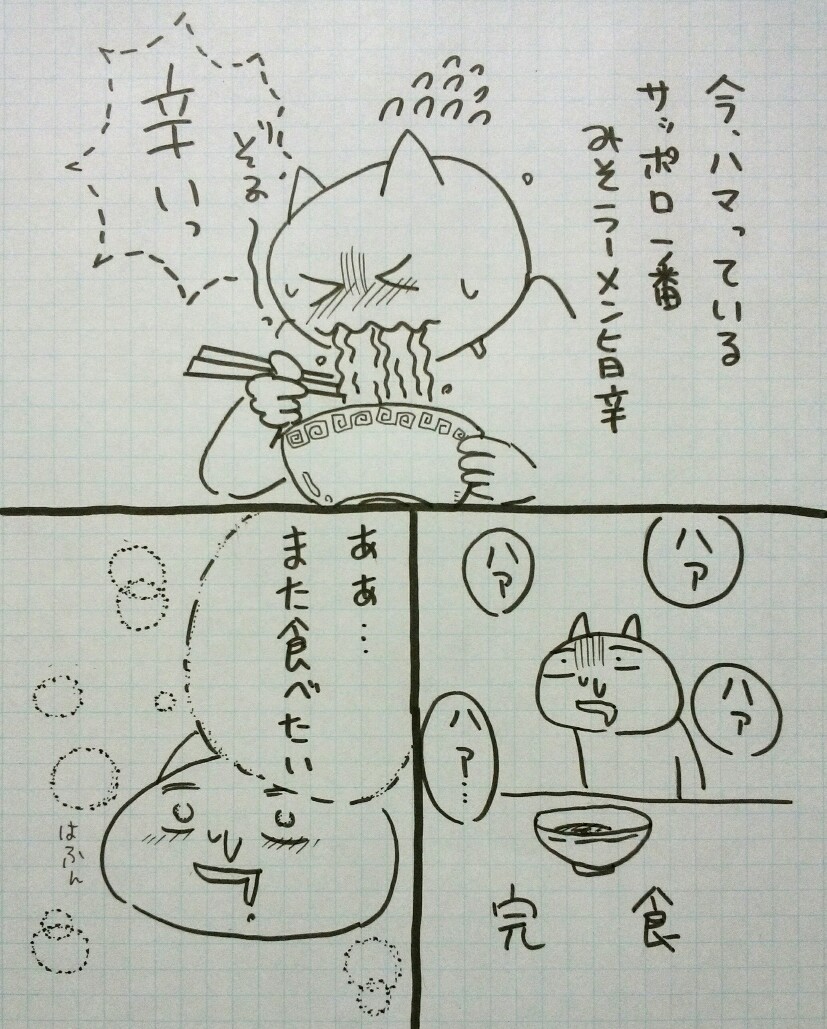 今、ハマっている
サッポロ一番
みそラーメン旨辛
ずぞぞ
辛いっ
ハァ
ハァ
ハァ
ハァ…
完食
ああ…
また食べたい
はふん